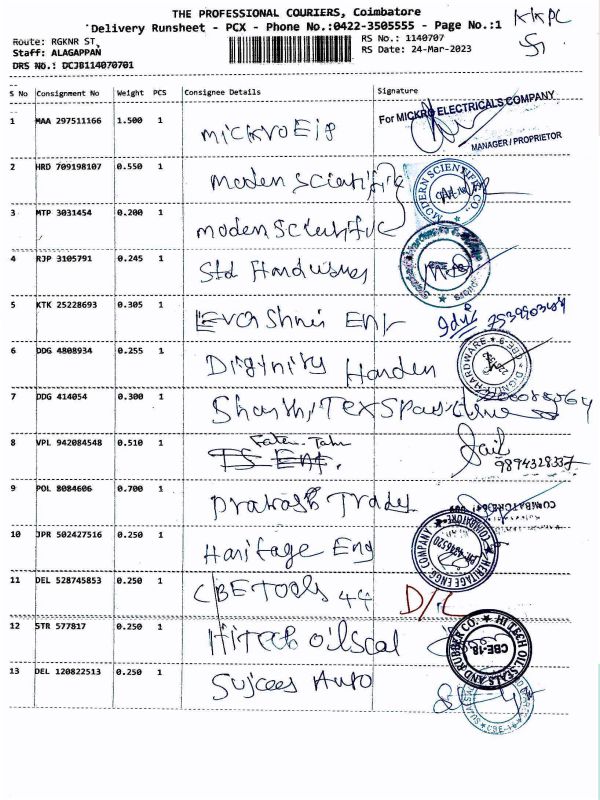 THE PROFESSIONAL COURIERS, Coimbatore
Delivery Runsheet - PCX - Phone No.:0422-3505555 - Page No.:1
KKPC
Route: RGKNR ST,
RS No.: 1140707
Staff: ALAGAPPAN
RS Date: 24-Mar-2023
DRS No.: DCJB114070701
S No Consignment No Weight PCS Consignee Details Signature
1 MAA 297511166 1.500 1 mickro
For MICKRO ELECTRICALS COMPANY
MANAGER / PROPRIETOR
2 HRD 709198107 0.550 1 moden scientific
MODERN SCIENTIFIC CO.
3 MTP 3031454 0.200 1 moden scientific
4 RJP 3105791 0.245 1 Std Hardwares
5 KTK 25228693 0.305 1
6 DDG 4808934 0.255 1 Diginity Harden
DIGNITY HARDWARE CBE-9
7 DDG 414054 0.300 1
8 VPL 942084548 0.510 1
9894328337
9 POL 8084606 0.700 1 prakash Trades
10 JPR 502427516 0.250 1 Haritage Eng
HERITAGE ENGG COMPANY COIMBATORE
11 DEL 528745853 0.250 1 CBE Tools 44 D/L
12 STR 577817 0.250 1 Hitech oilseal
HI TECH OIL SEALS AND RUBBER CO. CBE-18.
13 DEL 120822513 0.250 1 Sujees Auto